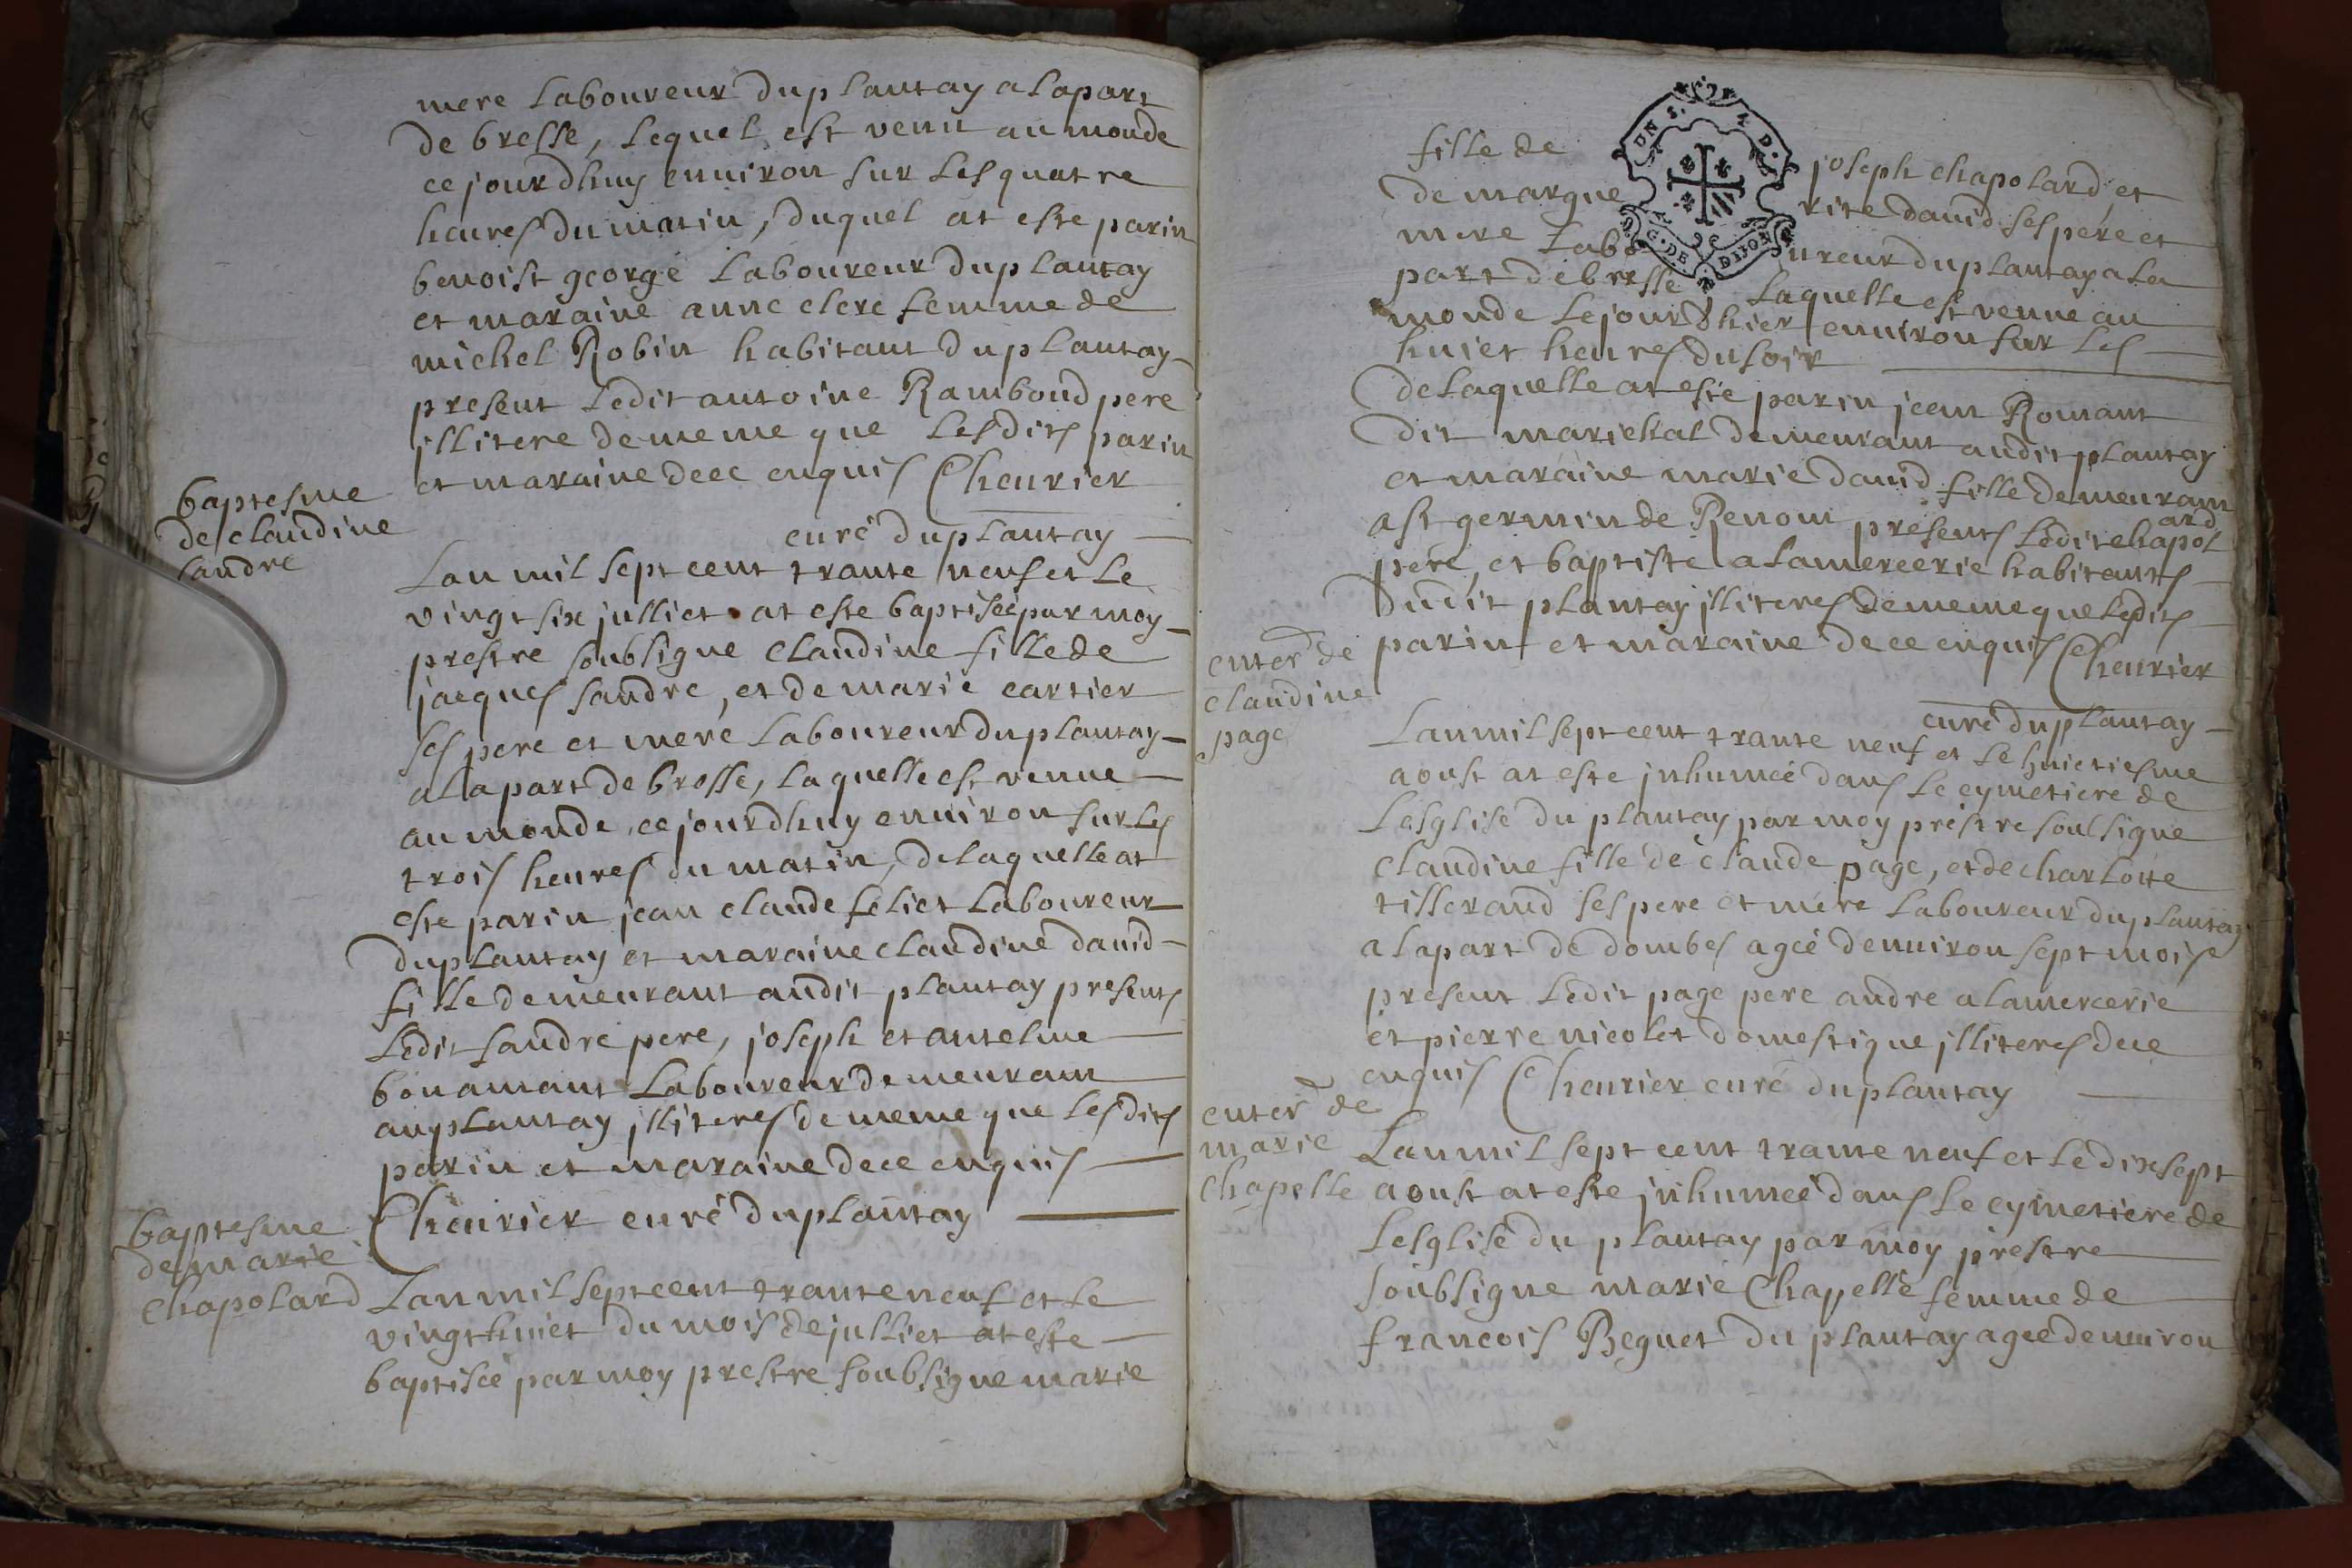 mere laboureur du plantay a la part
de bresse, lequel est venu au monde
ce jourdhuy environ sur les quatre
heures du matin, duquel at este parin
benoist george laboureur du plantay
et maraine anne clerc femme de
michel Robin habitant du plantay
present ledit antoine Ramboud pere
jllitere de meme que lesdits parin
et maraine de ce enquis Cheurier
curé du plantay
baptesme
de claudine
sandre
Lan mil sept cent trante neuf et le
vingt six julliet at este baptiseé par moy
prestre soubsigne claudine fille de
jacques sandre, et de marie cartier
ses pere et mere laboureur du plantay
a la part de bresse, laquelle est venue
au monde ce jourdhuy environ sur les
trois heures du matin, de laquelle at
este parin jean claude feliet laboureur
du plantay et maraine claudine david
fille demeurant audit plantay presents
ledit sandre pere, joseph et antelme
bonamant laboureur demeurant
au plantay jlliteres de meme que lesdits
parin et maraine de ce enquis
Cheurier curé du plantay
baptesme
de marie
chapolard
Lan mil sept cent trante neuf et le
vingt huiet du mois de julliet at este
baptisée par moy prestre soubsigne marie
DN S. 4. D.
G. DE DIJON
fille de joseph chapolard, et
de margue rite david ses pere et
mere labo ureur du plantay a la
part de bresse laquelle est venue au
monde le jour d hier environ sur les
huiet heures du soir
de laquelle at este parin jean Romant
dit marichal demeurant audit plantay
et maraine marie david fille demeurant
a st germin de Renom presents ledit chapolard
pere, et baptiste alamercerie habitants
dudit plantay jlliteres de meme que lesdits
parin et maraine de ce enquis Cheurier
curé du plantay
enter de
claudine
page
Lan mil sept cent trante neuf et le huietiesme
aoust at este jnhumeé dans le cymetiere de
lesglise du plantay par moy prestre soussigne
claudine fille de claude page, et de charlotte
tisserand ses pere et mere laboureur du plantay
a la part de dombes ageé denviron sept mois
present ledit page pere andre alamercerie
et pierre nicolet domestique jlliteres de ce
enquis Cheurier curé du plantay
enter de
marie
chapelle
Lan mil sept cent trante neuf et le dixsept
aoust at este jnhumeé dans le cymetiere de
lesglise du plantay par moy prestre
soubsigne marie Chapelle femme de
francois Beguet du plantay ageé denviron